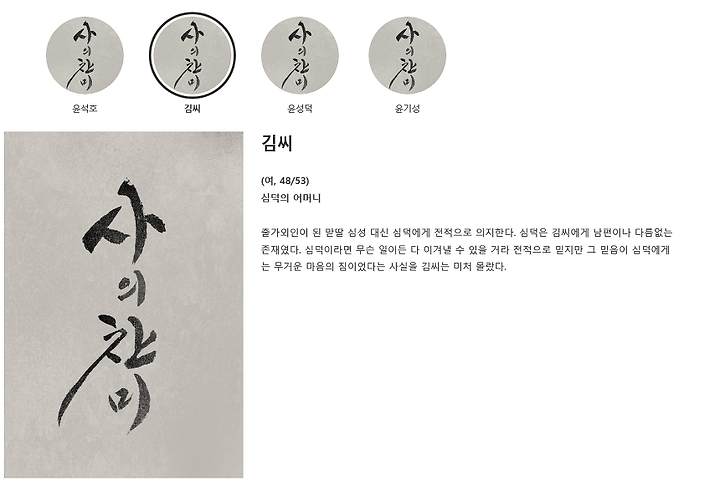 사
의
찬
미
사
의
찬
미
사
의
찬
미
사
의
찬
미
윤석호
김씨
윤성덕
윤기성
사
의
찬
미
김씨
(여, 48/53)
심덕의 어머니
출가외인이 된 맏딸 심성 대신 심덕에게 전적으로 의지한다. 심덕은 김씨에게 남편이나 다름없는
존재였다. 심덕이라면 무슨 일이든 다 이겨낼 수 있을 거라 전적으로 믿지만 그 믿음이 심덕에게
는 무거운 마음의 짐이었다는 사실을 김씨는 미처 몰랐다.